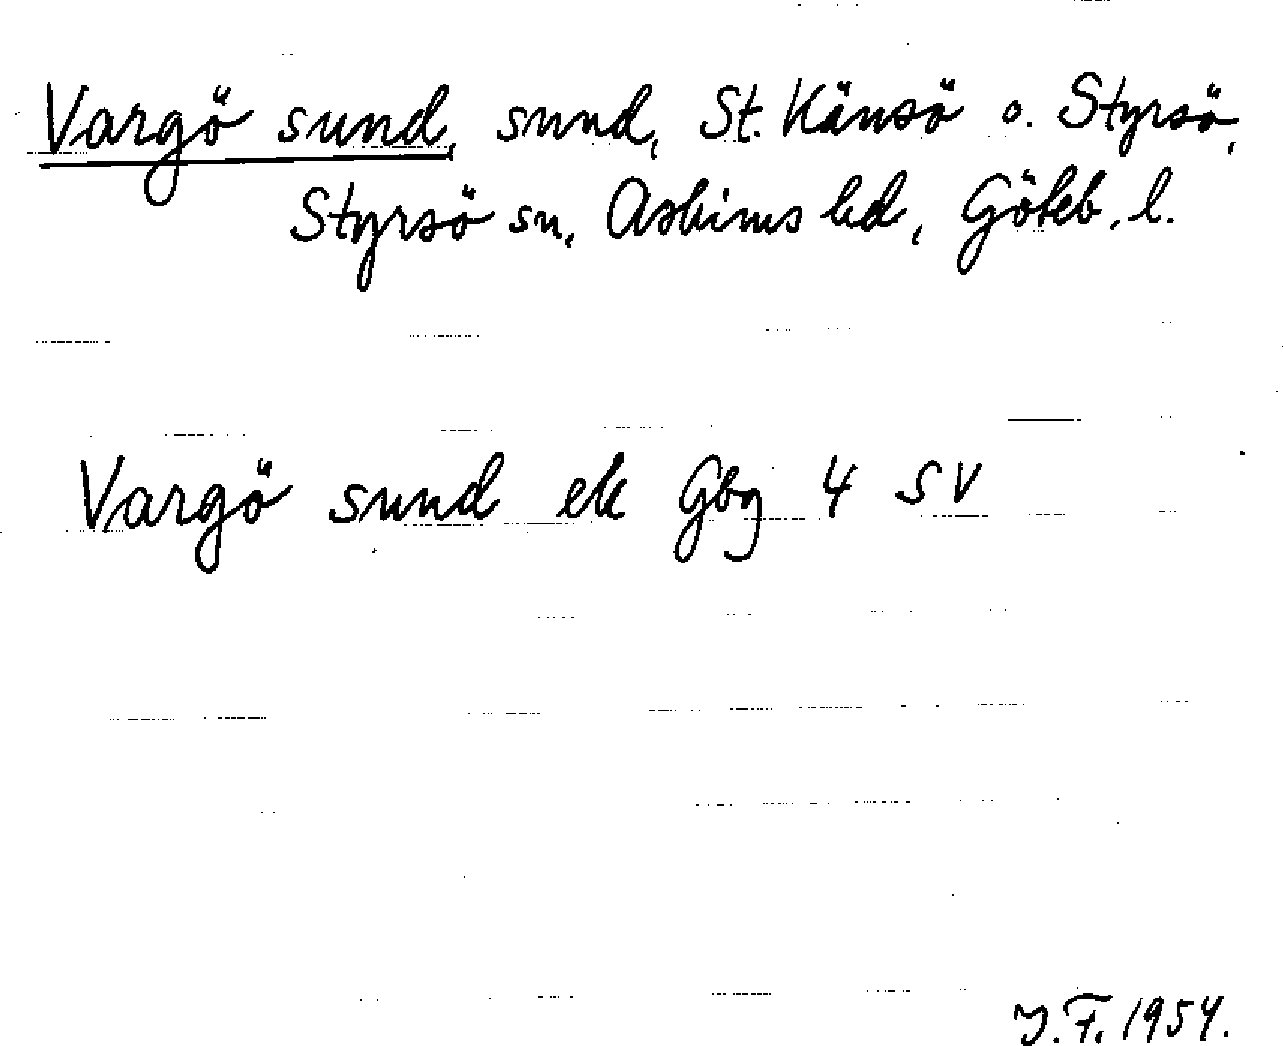 Vargö sund, sund, St. Känsö o. Styrsö,
Styrsö sn, Askims hd, Göteb. l.
Vargö sund ek Gbg 4 SV
J. F. 1954.